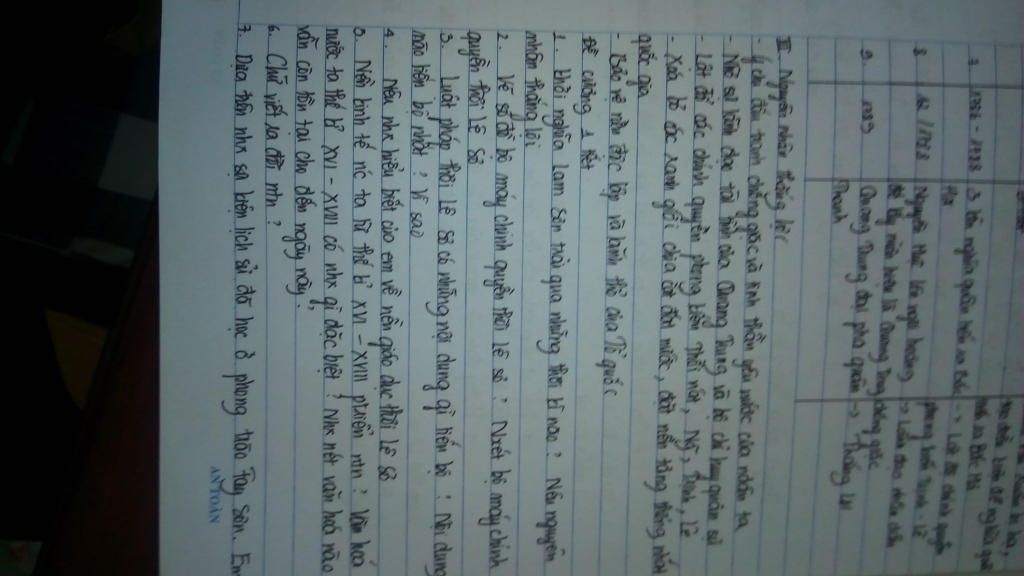 7 1786 - 1788 3 lần nghĩa quân tiến ra Bắc
Hà → Lật đổ chính quyền phong kiến Trịnh - Lê
8 12 / 1788 Nguyễn Huệ lên ngôi hoàng
đế lấy niên hiệu là Quang Trung → Lãnh đạo nhân dân chống giặc
9. 1789 Quang Trung đại phá quân → Thắng lợi
Thanh
III Nguyên nhân thắng lợi
- Ý chí đấu tranh chống giặc và tinh thần yêu nước của ndân ta
- Nhờ sự lãnh đạo tài tình của Quang Trung và bộ chỉ huy quân sự
- Lật đổ các chính quyền phong kiến thối nát, Ng~, Trịnh, Lê
- Xóa bỏ óc xanh giới chia cắt đất nước, đặt nền tảng thống nhất
quốc gia
- Bảo vệ nền độc lập và lãnh thổ của Tổ quốc
Đề cương 1 tiết
1. Khởi nghĩa Lam Sơn trải qua những thời kì nào? Nêu nguyên
nhân thắng lợi
2. Vẽ sơ đồ bộ máy chính quyền thời Lê sơ? Nxét bộ máy chính
quyền thời Lê Sơ
3. Luật pháp thời Lê Sơ có những nội dung gì tiến bộ? Nội dung
nào tiến bộ nhất? Vì sao
4. Nêu nhx hiểu biết của em về nền giáo dục thời Lê sơ
5. Nền kinh tế nc ta từ thế kỉ XVI - XVIII ptriển ntn? Văn hoá
nước ta thế kỉ XVI - XVIII có nhx gì đặc biệt? Nhx nét văn hoá nào
vẫn còn tồn tại cho đến ngày nay?
6. Chữ viết ra đời ntn?
7. Dựa trên nhx sự kiện lịch sử đã học ở phong trào Tây Sơn. Em
AN TOÀN